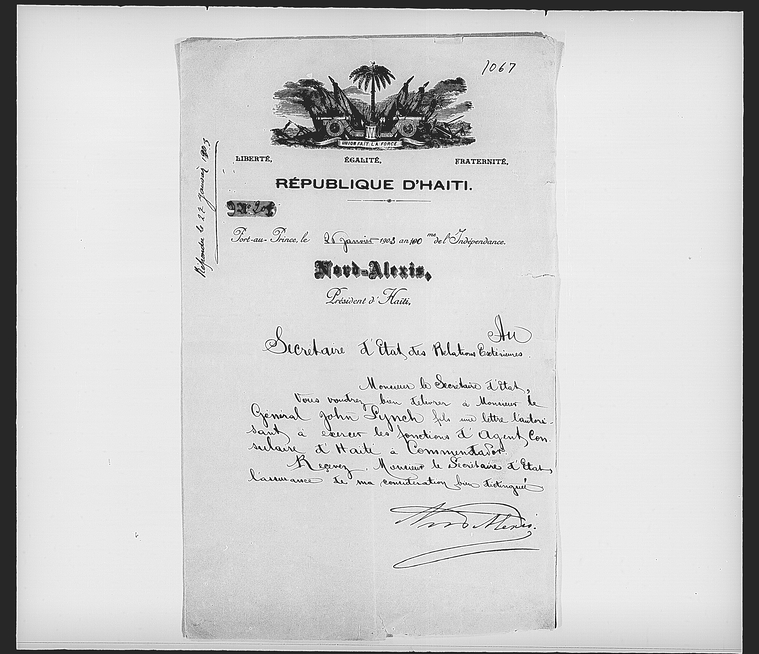 1067
UNION FAIT LA FORCE
LIBERTÉ, ÉGALITÉ, FRATERNITÉ,
RÉPUBLIQUE D'HAITI.
Port-au-Prince, le 26 janvier 1903 an 100 me de l'Indépendance.
Nord-Alexis,
Président d'Haïti,
Au
Secrétaire d'Etat des Relations Extérieures.
Monsieur le Secrétaire d'Etat,
Vous voudrez bien délivrer à Monsieur le
Général John Lynch fils une lettre l'autori-
sant à exercer les fonctions d'Agent Con-
sulaire d'Haïti à Commendador.
Recevez, Monsieur le Secrétaire d'Etat,
l'assurance de ma considération bien distinguée
Nord Alexis.
Répondu le 27 Janvier 1903